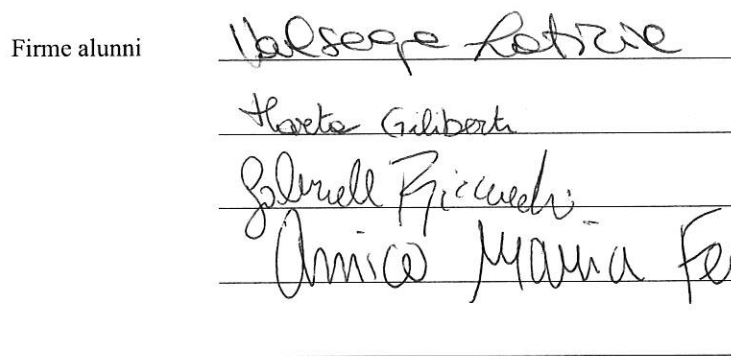 Firme alunni
Valsega Letizia
Marta Giliberti
Riccardi
Amico Maria Fe